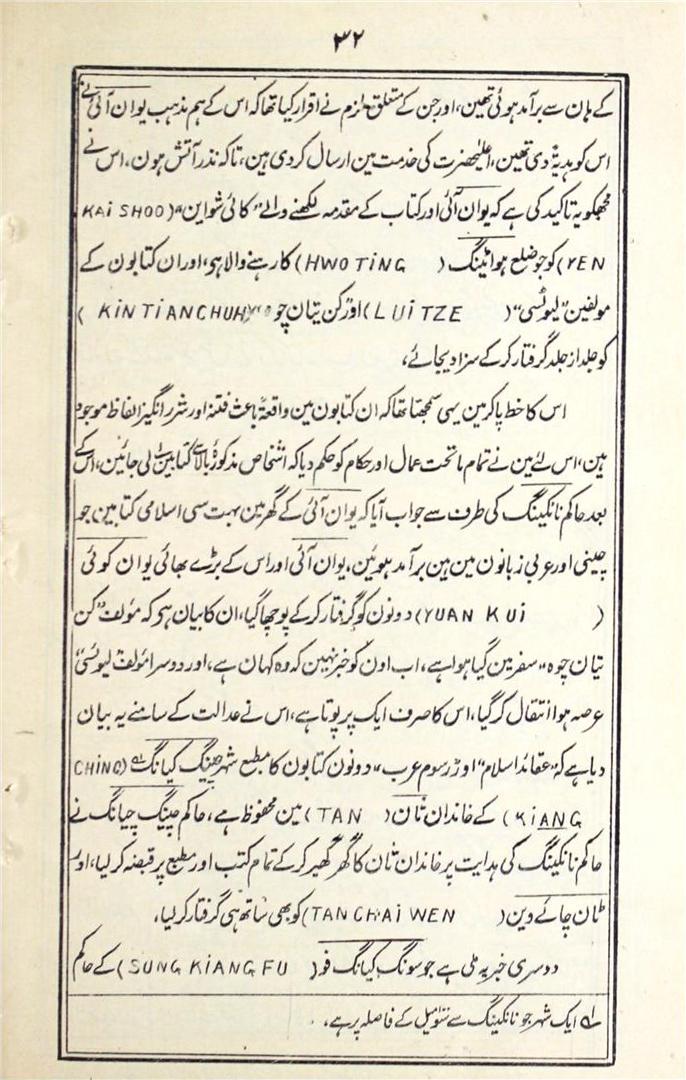 ۳۲
کے ہان سے برآمد ہوئی تھین، اور جن کے متعلق ملزم نے اقرار کیا تھا کہ اس کے ہم مذہب یوان آئی نے
اس کو ہدیۃً دی تھین، اعلیٰحضرت کی خدمت مین ارسال کر دی ہین، تاکہ نذر آتش ہون، اس نے
مجھکو یہ تاکید کی ہے کہ یوان آئی اور کتاب کے مقدمہ لکھنے والے "کائی شواین" (KAI SHOO
YEN) کو جو ضلع ہواٹینگ (HWO TING) کا رہنے والا ہی، اور ان کتابون کے
مولفین "لیوٹسی" (LUI TZE) اور "کن یتان چوہ" (KIN TIAN CHUH)
کو جلد از جلد گرفتار کر کے سزا دیجائے،
اس کا خط پا کر مین یہی سمجھتا تھا کہ ان کتابون مین واقعۃً باعث فتنہ اور شر انگیز الفاظ موجود
ہین، اس لئے مین نے تمام ماتحت عمال اور حکام کو حکم دیا کہ اشخاص مذکورۂ بالا سے کتابین لے لی جائین، اس کے
بعد حاکم نانکینگ کی طرف سے جواب آیا کہ یوان آئی کے گھر مین بہت سی اسلامی کتابین جو
چینی اور عربی زبانون مین ہین برآمد ہوئین، یوان آئی اور اس کے بڑے بھائی یوان کوئی
(YUAN KUI) دونون کو گرفتار کر کے پوچھا گیا، ان کا بیان ہی کہ مؤلف "کن
تیان چوہ" سفر مین گیا ہوا ہے، اب اون کو خبر نہین کہ وہ کہان ہے، اور دوسرا مؤلف "لیوٹسی"
عرصہ ہوا انتقال کر گیا، اس کا صرف ایک پرپوتا ہے، اس نے عدالت کے سامنے یہ بیان
دیا ہے کہ "عقائد اسلام" اور "رسوم عرب" دونون کتابون کا مطبع شہر چینگ کیانگ لہ (CHING
KIANG) کے خاندان ثان (TAN) مین محفوظ ہے، حاکم چینگ چیانگ نے
حاکم نانکینگ کی ہدایت پر خاندان ثان کا گھر گھیر کر کے تمام کتب اور مطبع پر قبضہ کر لیا، اور
ٹان چائے وین (TAN CHAI WEN) کو بھی ساتھ ہی گرفتار کر لیا،
دوسری خبر یہ ملی ہے جو سونگ کیانگ فو (SUNG KIANG FU) کے حاکم
لہ ایک شہر جو نانکینگ سے سَو میل کے فاصلہ پر ہے،